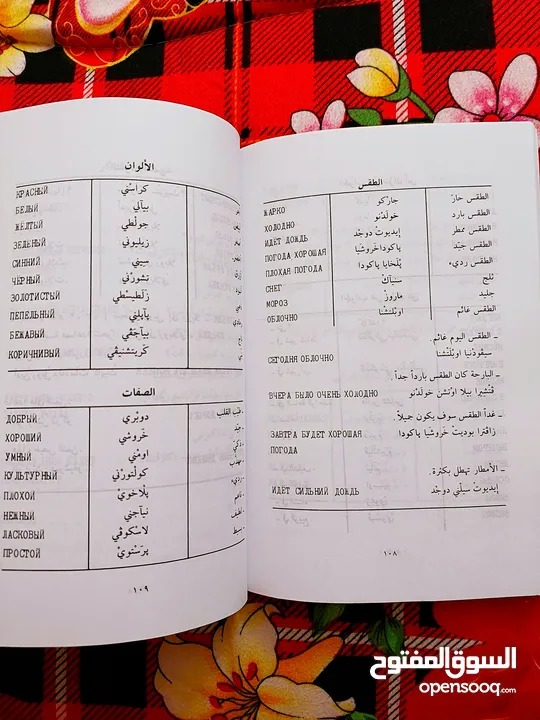 الطقس
الطقس حارّ جاركو ЖАРКО
الطقس بارد خولَدْنو ХОЛОДНО
الطقس ممطر إيديوتْ دوجْد ИДЁТ ДОЖДЬ
الطقس جيّد پاكوداخَروشيا ПОГОДА ХОРОШАЯ
الطقس رديء پْلَخايا پاكودا ПЛОХАЯ ПОГОДА
ثلج سْنياكْ СНЕГ
جليد ماروزْ МОРОЗ
الطقس غائم اوبْلَتْشْنا ОБЛОЧНО
ـ الطقس اليوم غائم.
سيڤودْنيا اوبْلَتْشْنا
СЕГОДНЯ ОБЛОЧНО
ـ البارحة كان الطقس بارداً جداً.
ڤتْشيرا بيلا اوتْشن خولَدْنو
ВЧЕРА БЫЛО ОЧЕНЬ ХОЛОДНО
ـ غداً الطقس سوف يكون جميلاً.
زاڤترا بوديتْ خَروشيا پاكودا
ЗАВТРА БУДЕТ ХОРОШАЯ
ПОГОДА
ـ الأمطار تهطل بكثرة.
إيديوتْ سيلْني دوجْد
ИДЁТ СИЛНИЙ ДОЖДЬ
١٠٨
الألوان
كراسْني КРАСНЫЙ
بيآلي БЕЛЫЙ
جولْطي ЖЁЛТЫЙ
زيليوني ЗЕЛЕНЫЙ
سيني СИННИЙ
تشورْني ЧЁРНЫЙ
زلَطيسْطي ЗОЛОТИСТЫЙ
پيآپلني ПЕПЕЛЬНЫЙ
بيآجَڤي БЕЖАВЫЙ
كَريتشنيڤي КОРИЧНИВЫЙ
الصفات
طيب القلب دوبْري ДОБРЫЙ
جيد خَروشي ХОРОШИЙ
اومْني УМНЫЙ
كولْتورْني КУЛЬТУРНЫЙ
پْلاخويْ ПЛОХОЙ
ناعم نيآجني НЕЖНЫЙ
لطيف لاسْكوڤي ЛАСКОВЫЙ
بسيط پرَسْتويْ ПРОСТОЙ
١٠٩
السوق المفتوح
opensooq.com